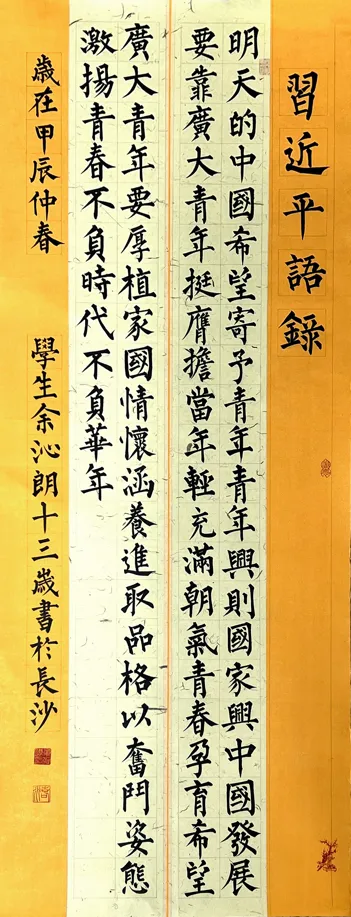 習近平語錄
明天的中國希望寄予青年青年興則國家興中國發展
要靠廣大青年挺膺擔當年輕充滿朝氣青春孕育希望
廣大青年要厚植家國情懷涵養進取品格以奮鬥姿態
激揚青春不負時代不負華年
歲在甲辰仲春 學生余沁朗十三歲書於長沙